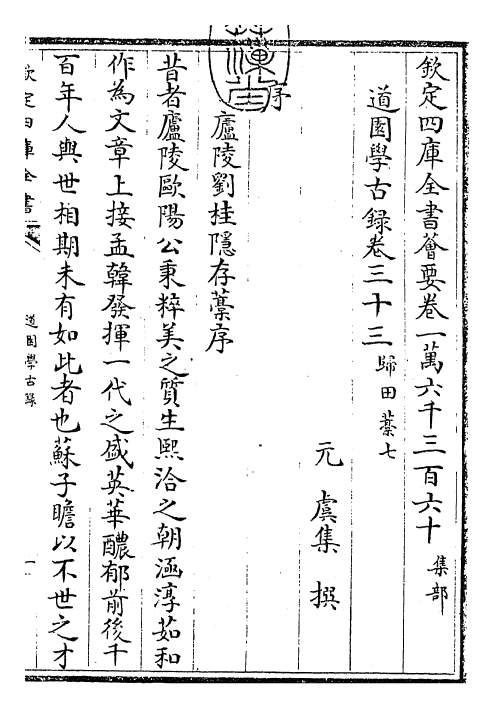 欽定四庫全書薈要卷一萬六千三百六十 集部
道園學古録卷三十三 歸田藁七
元 虞集 撰
序
廬陵劉桂隠存藁序
昔者廬陵歐陽公秉粹美之質生熈洽之朝涵淳茹和
作為文章上接孟韓發揮一代之盛英華醲郁前後千
百年人與世相期未有如此者也蘇子瞻以不世之才
欽定四庫全書
道園學古録
一